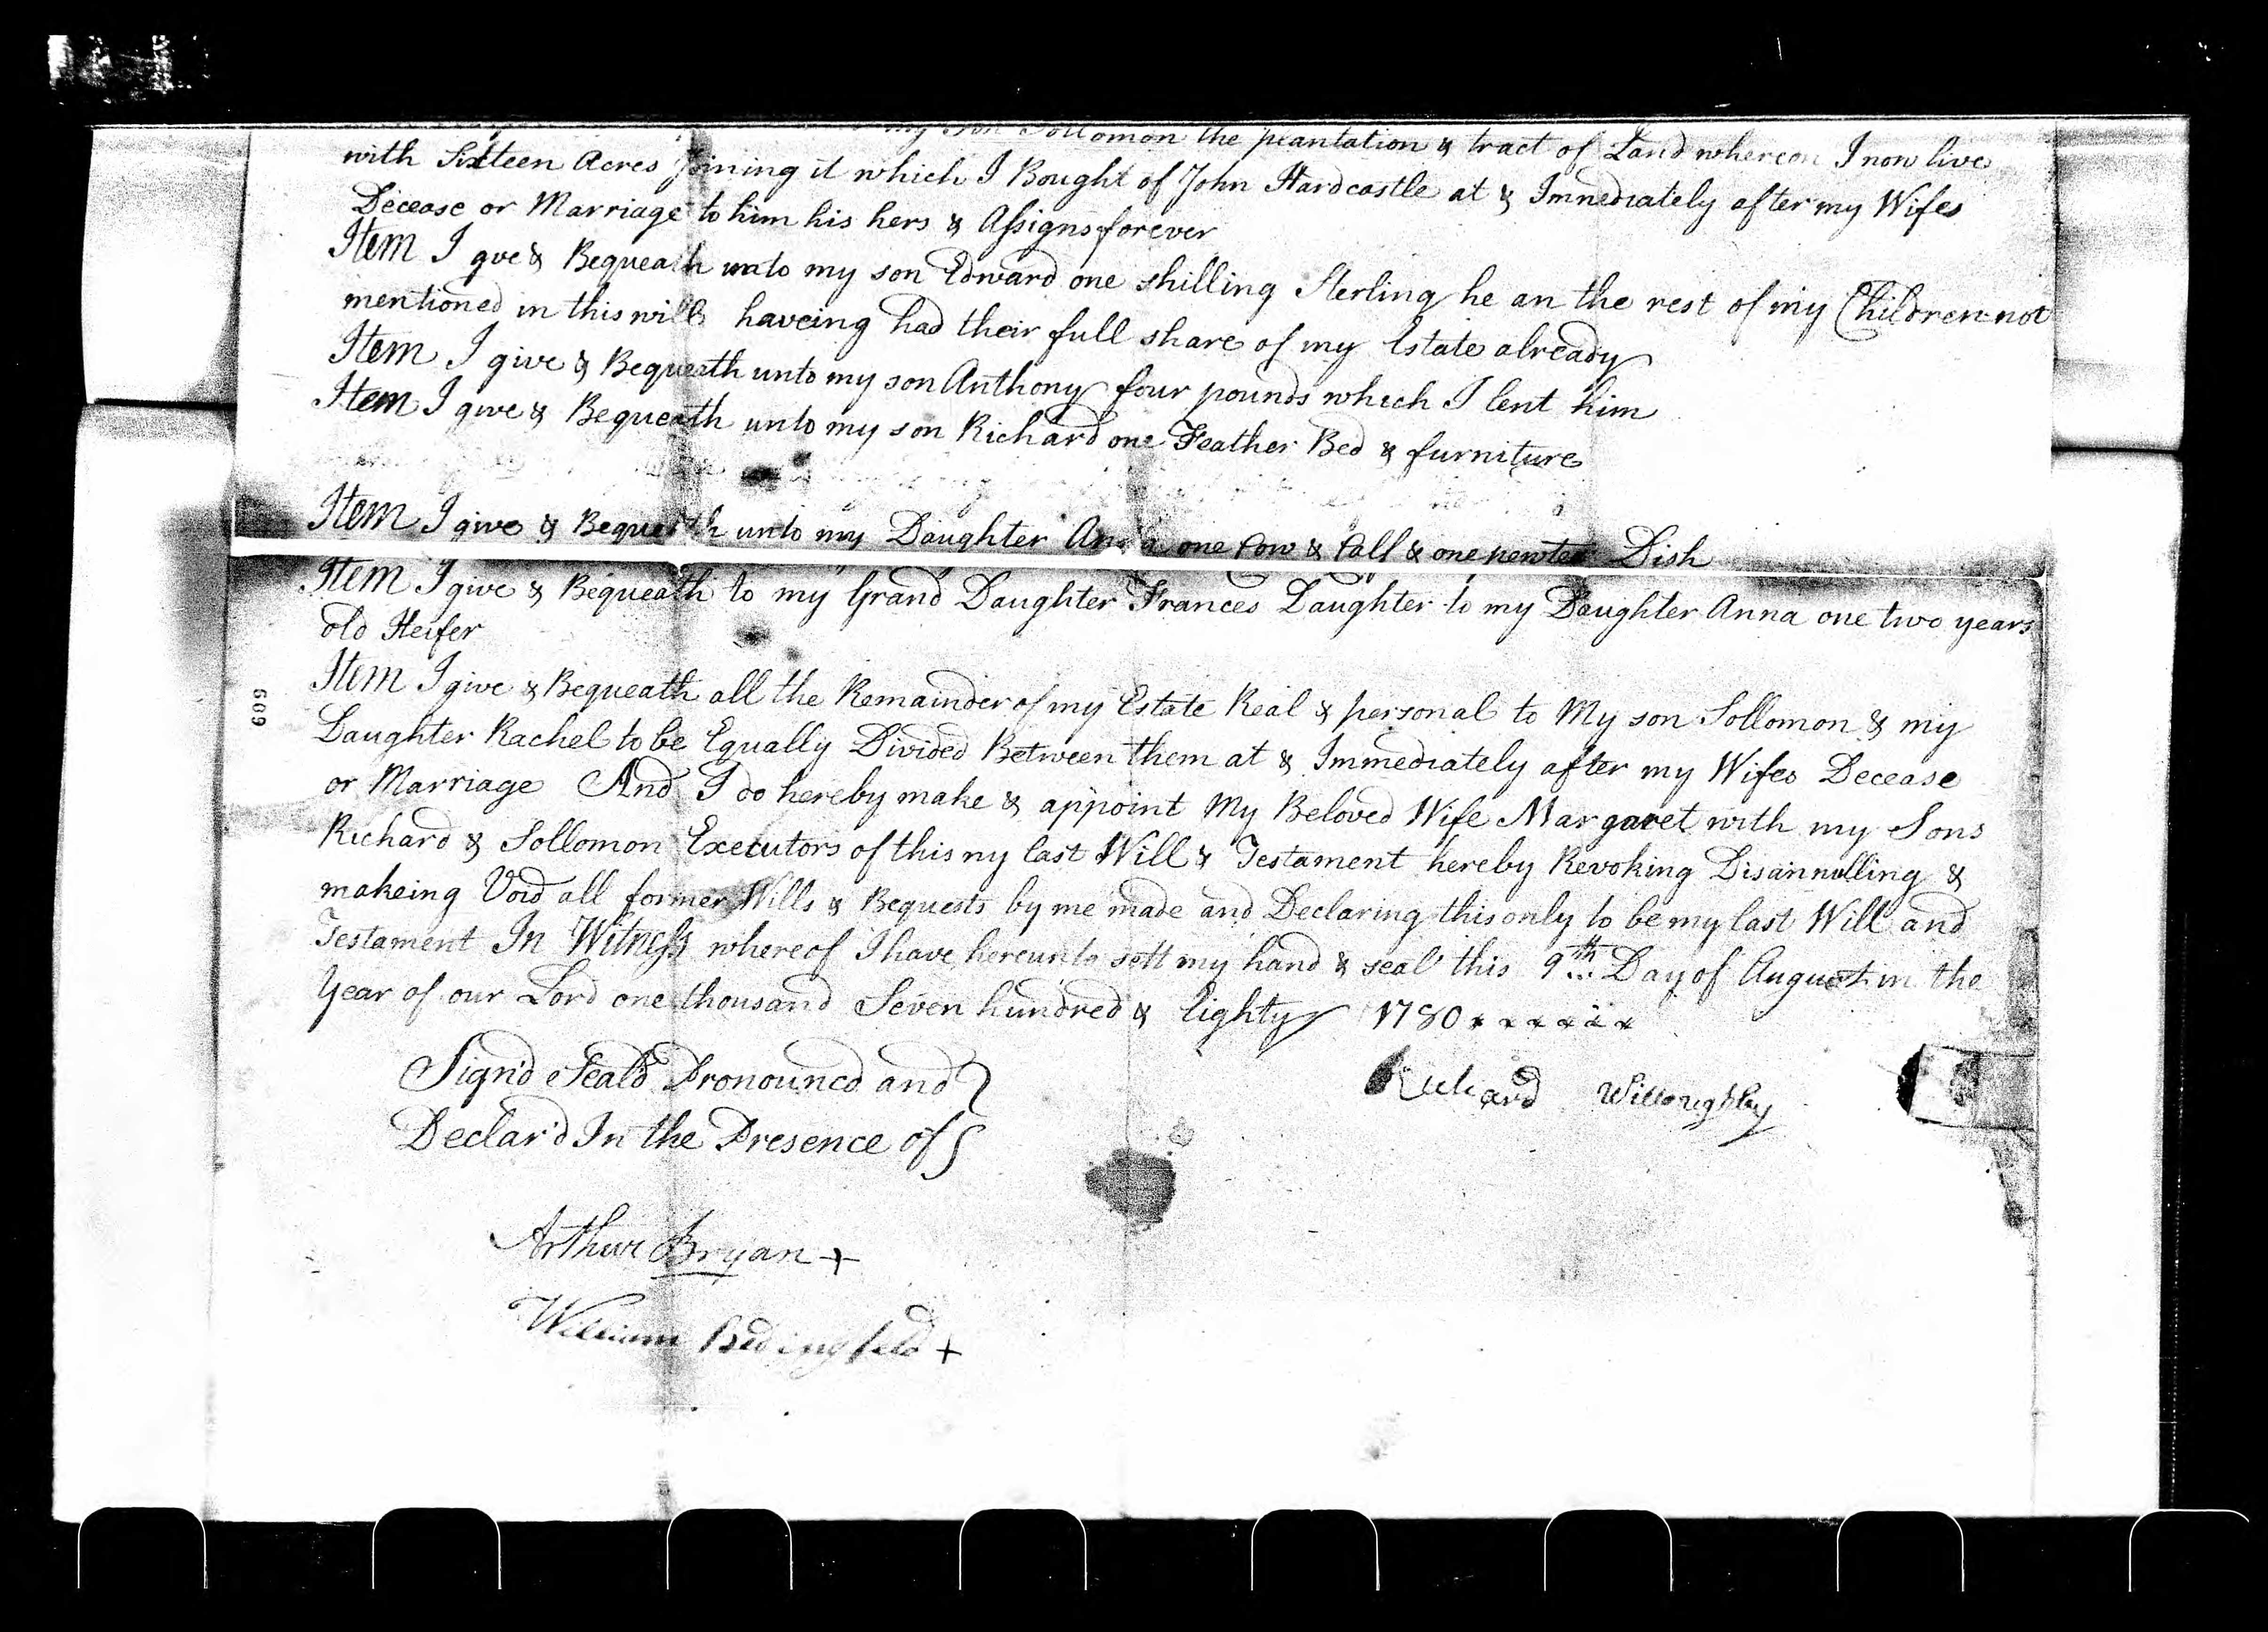 my son Sollomon the plantation & tract of Land whereon I now live
with Sixteen Acres Joining it which I Bought of John Hardcastle at & Immediately after my Wifes
Decease or Marriage to him his hers & Assigns forever
Item I gve & Bequeath unto my son Edward one shilling Sterling he an the rest of my Children not
mentioned in this will haveing had their full share of my Estate already
Item I give & Bequeath unto my son Anthony four pounds which I lent him
Item I give & Bequeath unto my son Richard one Feather Bed & furniture
Item I give & Bequeath unto my Daughter Anna one Cow & Calf & one pewter Dish
Item I give & Bequeath to my Grand Daughter Frances Daughter to my Daughter Anna one two years
old Heifer
Item I give & Bequeath all the Remainder of my Estate Real & personal to My son Sollomon & my
Daughter Rachel to be Equally Divided Between them at & Immediately after my Wifes Decease
or Marriage And I do hereby make & appoint My Beloved Wife Margaret with my Sons
Richard & Sollomon Executors of this my last Will & Testament hereby Revoking Disannulling &
makeing Void all former Wills & Bequests by me made and Declaring this only to be my last Will and
Testament In Witness whereof I have hereunto sett my hand & seal this 9th Day of August in the
Year of our Lord one thousand Seven hundred & Eighty 1780
Sign'd Seal'd Pronounc'd and
Declar'd In the Presence of
Richard Willoughby
Arthur Bryan +
William Bedingfeld +
609